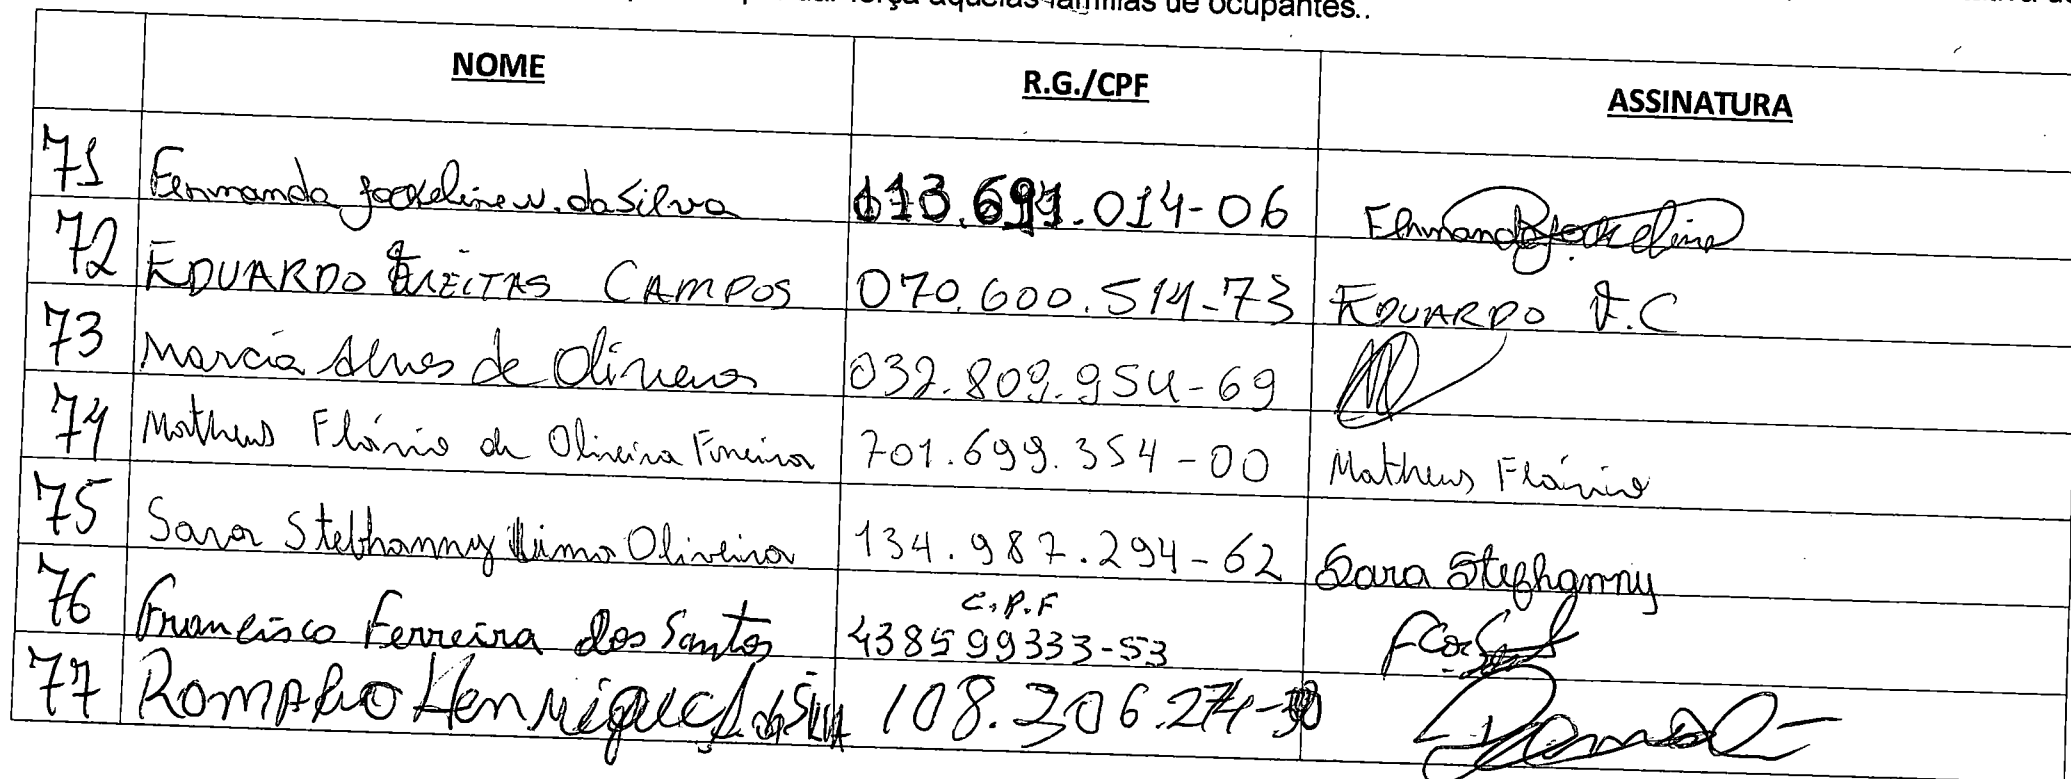 força àquelas famílias de ocupantes..
NOME R.G./CPF ASSINATURA
71 Fernanda Jackeline N. da Silva 014-06 Fernanda Jackeline
72 EDUARDO FREITAS CAMPOS 070.600.514-73 EDUARDO F.C
73 Marcia Alves de Oliveira 032.809.954-69
74 Matheus Flávio de Oliveira Ferreira 701.699.354-00 Matheus Flávio
75 Sara Stephanny Lima Oliveira 134.987.294-62 Sara Stephanny
C.P.F
76 Francisco Ferreira dos Santos 438599333-53
77 Romario Henrique da Silva 108.306.274-